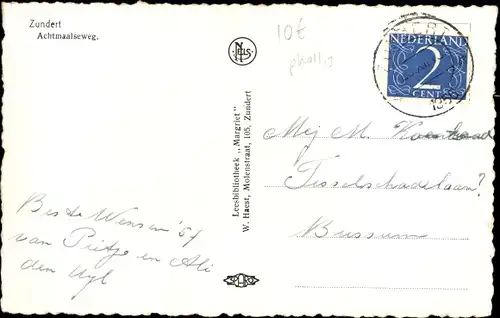 Zundert
Achtmaalseweg.
NELS
10€
NEDERLAND
2
CENT
Leesbibliotheek „Margriet"
W. Haest, Molenstraat, 105, Zundert
Mej M.
Tesselschadelaan?
Bussum
Beste Wensen '54
van Pietje en Ali
den Uyl